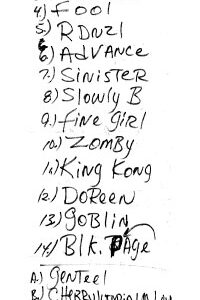 4.) FOOl
5.) RDNZl
6.) AdVANCE
7.) SiNiSTER
8.) Slowly B
9.) fiNE giRl
10.) ZOMBY
11.) KiNg KoNg
12.) DoREEN
13.) gOBliN
14.) Blk. PAge
A.) gENTEEl
B.)